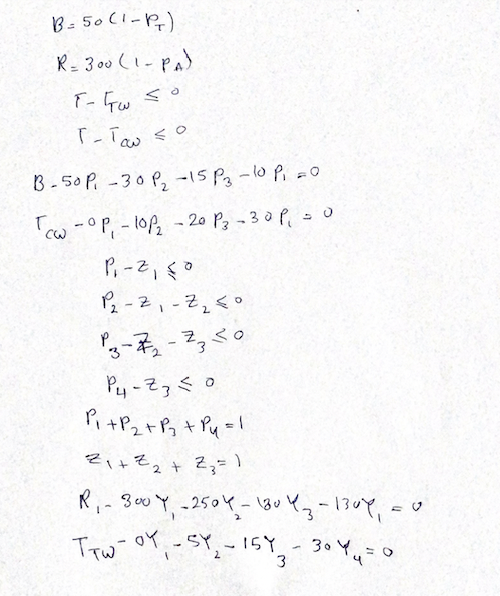 B = 50 (1 - P_T)
R = 300 (1 - P_A)
T - T_TW ≤ 0
T - T_CW ≤ 0
B - 50P_1 - 30P_2 - 15P_3 - 10P_1 = 0
T_CW - 0P_1 - 10P_2 - 20P_3 - 30P_1 = 0
P_1 - Z_1 ≤ 0
P_2 - Z_1 - Z_2 ≤ 0
P_3 - Z_2 - Z_3 ≤ 0
P_4 - Z_3 ≤ 0
P_1 + P_2 + P_3 + P_4 = 1
Z_1 + Z_2 + Z_3 = 1
R_1 - 300Y_1 - 250Y_2 - 180Y_3 - 130Y_1 = 0
T_TW - 0Y_1 - 5Y_2 - 15Y_3 - 30Y_4 = 0